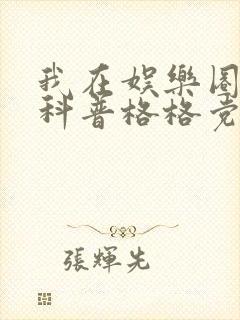 我在娱樂圈
科普格格党
張輝先